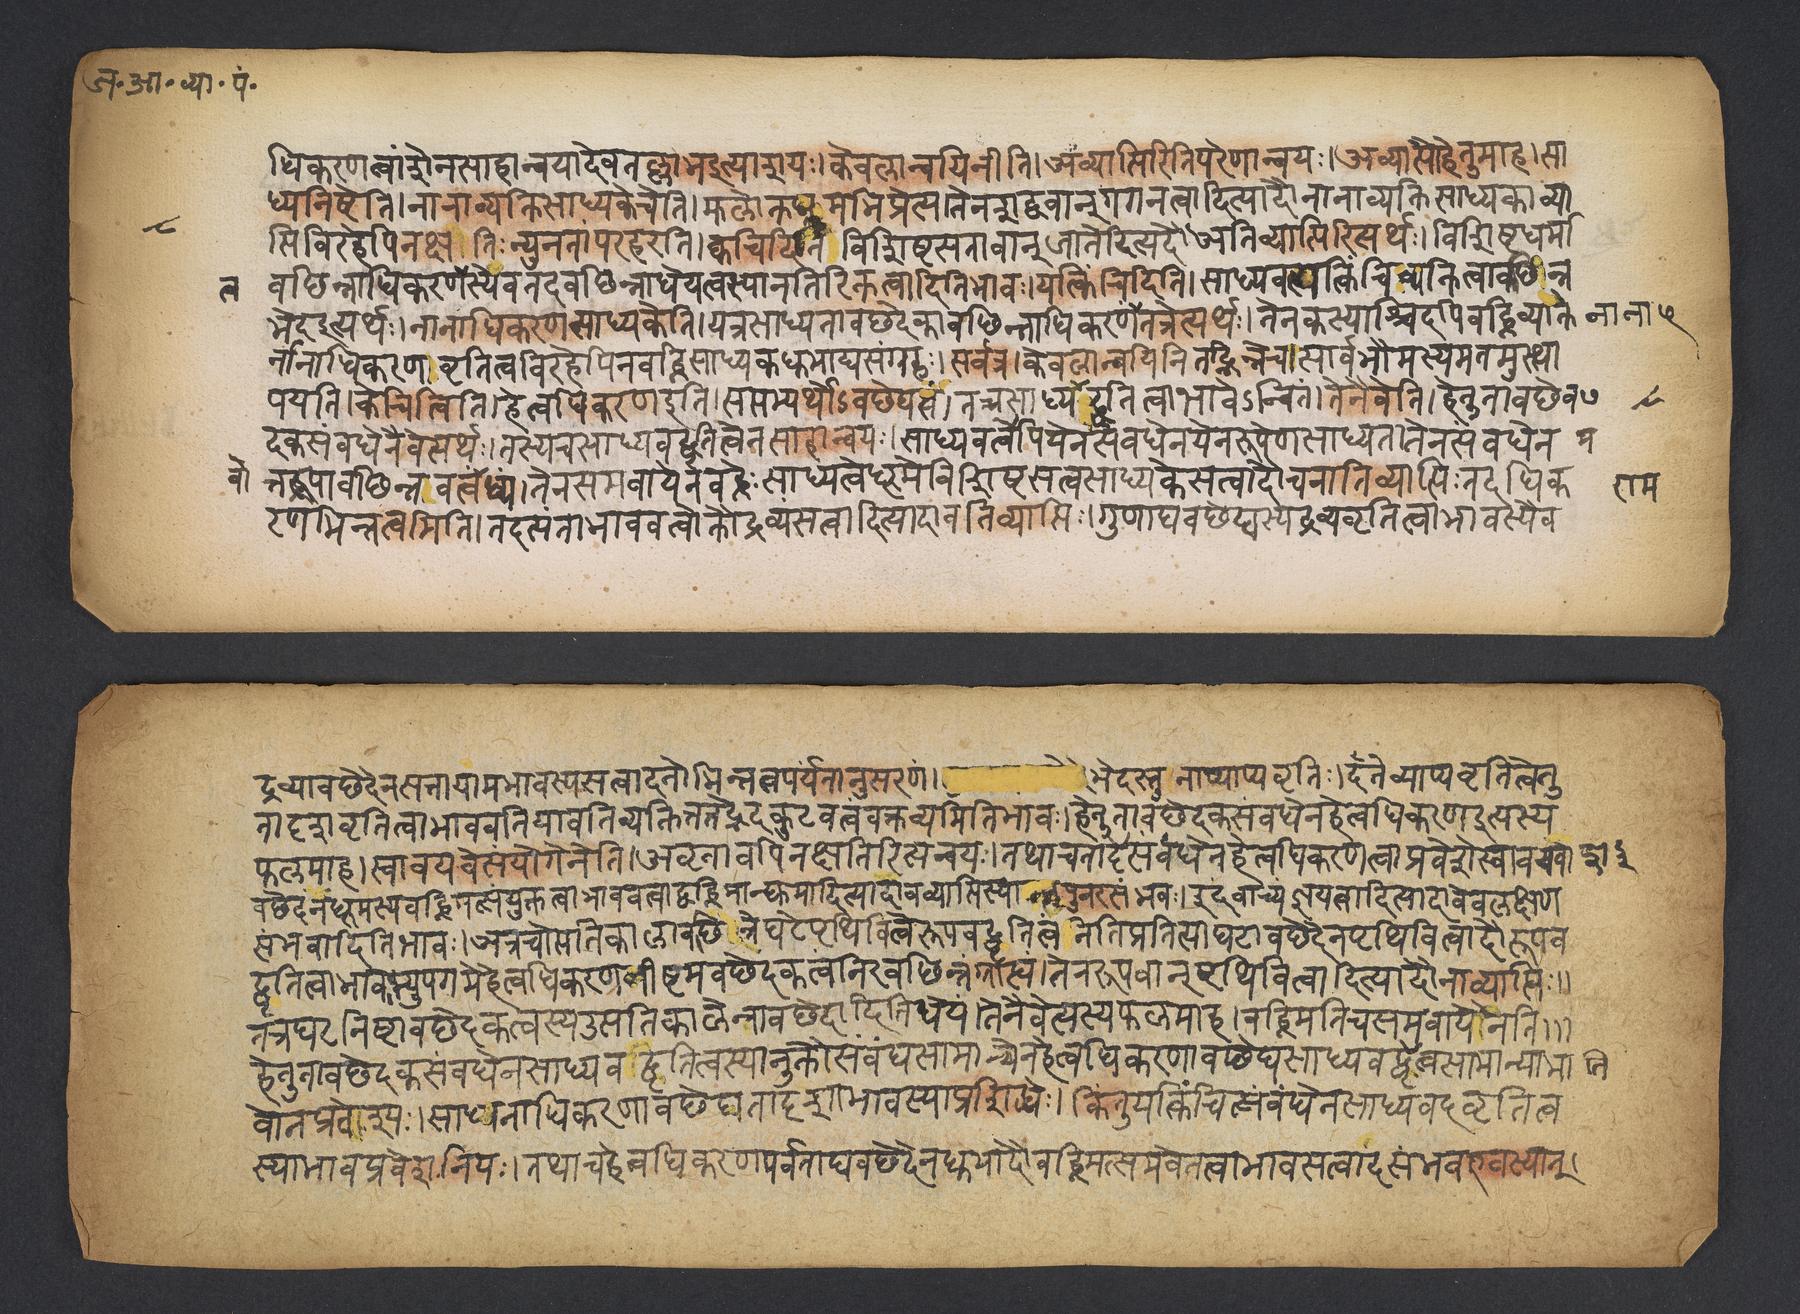 अ॰आ॰व्या॰पं॰
धिकरणत्वांशेनसाहान्वयादेवतल्लाभइत्याशयः।केवलान्वयिनीति।अव्याप्तिरितिपरेणान्वयः।अव्याप्तौहेतुमाह।सा
ध्यनिष्टेति।नानाव्यक्तिसाध्यकेचेति।फलोक्त मभिप्रेत्य।तेनतद्रूपवान्गगनत्वादित्यादौनानाव्यक्तिसाध्यकाव्या
प्तिविरहेपिनक्षतिःन्युनतांपरहरति।क्वचिदिति विशिष्टसत्तावान्जातेरित्यदौअतिव्याप्तिरित्यर्थः।विशिष्टधर्मा
८
वछिन्नाधिकरणेस्यैवतदवछिन्नाधेयत्वस्यानतिरिक्तत्वादितिभावः।यत्किंचिदिति।साध्यवत्यत्किंचिद्व्यक्तित्वावछिन्न
त
भेदइत्यर्थः।नानाधिकरणसाध्यकेति।यत्रसाध्यतावछेदकावछिन्नाधिकरणंतत्रेत्यर्थः।तेनकस्याश्चिदपिवह्निव्यक्ते नाना५
र्नानाधिकरणवृतित्वविरहेपिनवह्निसाध्यकधुमाद्यसंग्रहः।सर्वत्र।केवलान्वयिनितद्भिन्नेच।सार्वभौमस्यमतमुत्था
पयति।केचित्विति।हेत्वधिकरणइति।सप्तम्यर्थोऽवछेद्यत्वं।तच्चसाध्य वृतित्वाभावेऽन्वितं।तेनैवेति।हेतुतावछेव७ ८
दकसंबधेनैवेत्यर्थः।तस्यचसाध्यवद्वृतित्वेनसाहान्वयः।साध्यवत्वेपियेनसंबधेनयेनरूपेणसाध्यता।तेनसंबधेन म
तद्रूपावछिन्नवत्वंग्राह्यं।तेनसमवायेनवह्नेःसाध्यत्वेधुमेविशिष्टसत्वसाध्यकेसत्वादौचनातिव्याप्तिःतदधिक राम
बो
रणभिन्नत्वमिति।तदत्यंताभाववत्वोक्तौद्रव्यसत्वादित्यादावतिव्याप्तिः।गुणाद्यवछेद्यस्यद्रव्यवृतित्वाभावस्यैव
द्रव्यावछेदेनसत्तायामभावस्यसत्वादतोभिन्नत्वपर्यंतानुसरणं। भेदस्तु नाव्याप्यवृतिः। व्याप्यवृतित्वेतु
तादृशवृतित्वाभाववतियावतिव्यक्तितत्तद्भेदकुटवत्वंवक्तव्यमितिभावः।हेतुतावंछेदकसंबधेनहेत्वधिकरणइत्यस्य
फलमाह।स्वावयवेसंयोगेनेति।अवृतावपिनक्षतिरित्यन्वयः।तथाच संबंधेनहेत्वधिकरणेत्वाप्रवेशेस्वावयवा
वछेदेनधुमस्यवह्निमत्संयुक्तत्वाभाववत्वाद्वह्निमान्धुमादित्यादावव्याप्तिस्या पुनरसंभवः।इदंवाच्यंज्ञेयत्वादित्यादावेवलक्षण
संभवादितिभावः।अत्रचोत्पतिकालावछिन्नेघटेपृथिवित्वेरूपवद्वृतित्वं नेतिप्रतित्याघटावछेदेनपृथिवित्वादौरूपव
द्वृतित्वाभावाभ्युपगमेहेत्वधिकरण निष्टमवछेदकत्वनिरवछिन्नं ग्राह्यं।तेनरूपवान्पृथिवित्वादित्यादौनाव्याप्तिः॥
तत्रघटनिष्टावछेदकत्वस्यउत्पतिकालेनावछेदादितिध्येयं।तेनैवेत्यस्यफलमाह।वह्निमतिचसमवायेनेति॥।
हेतुतावछेदकसंबधेनसाध्यवद्वृतित्वस्यानुक्तौसंबंधसामान्येनहेत्वधिकरणावछेद्यसाध्यवद्वृतित्वसामान्याभा
वोनप्रवेश्यः।साधनाधिकरणावछेद्यतादृशाभावस्याप्रशिद्धेः। किंतुयत्किंचित्संबंधेनसाध्यवदवृतित्व
स्याभावप्रवेशनियः।तथाचहेत्वधिकरणपर्वताद्यवछेदेनधुमादौवह्निमत्समवेतत्वाभावसत्वादसंभवएवस्यात्।